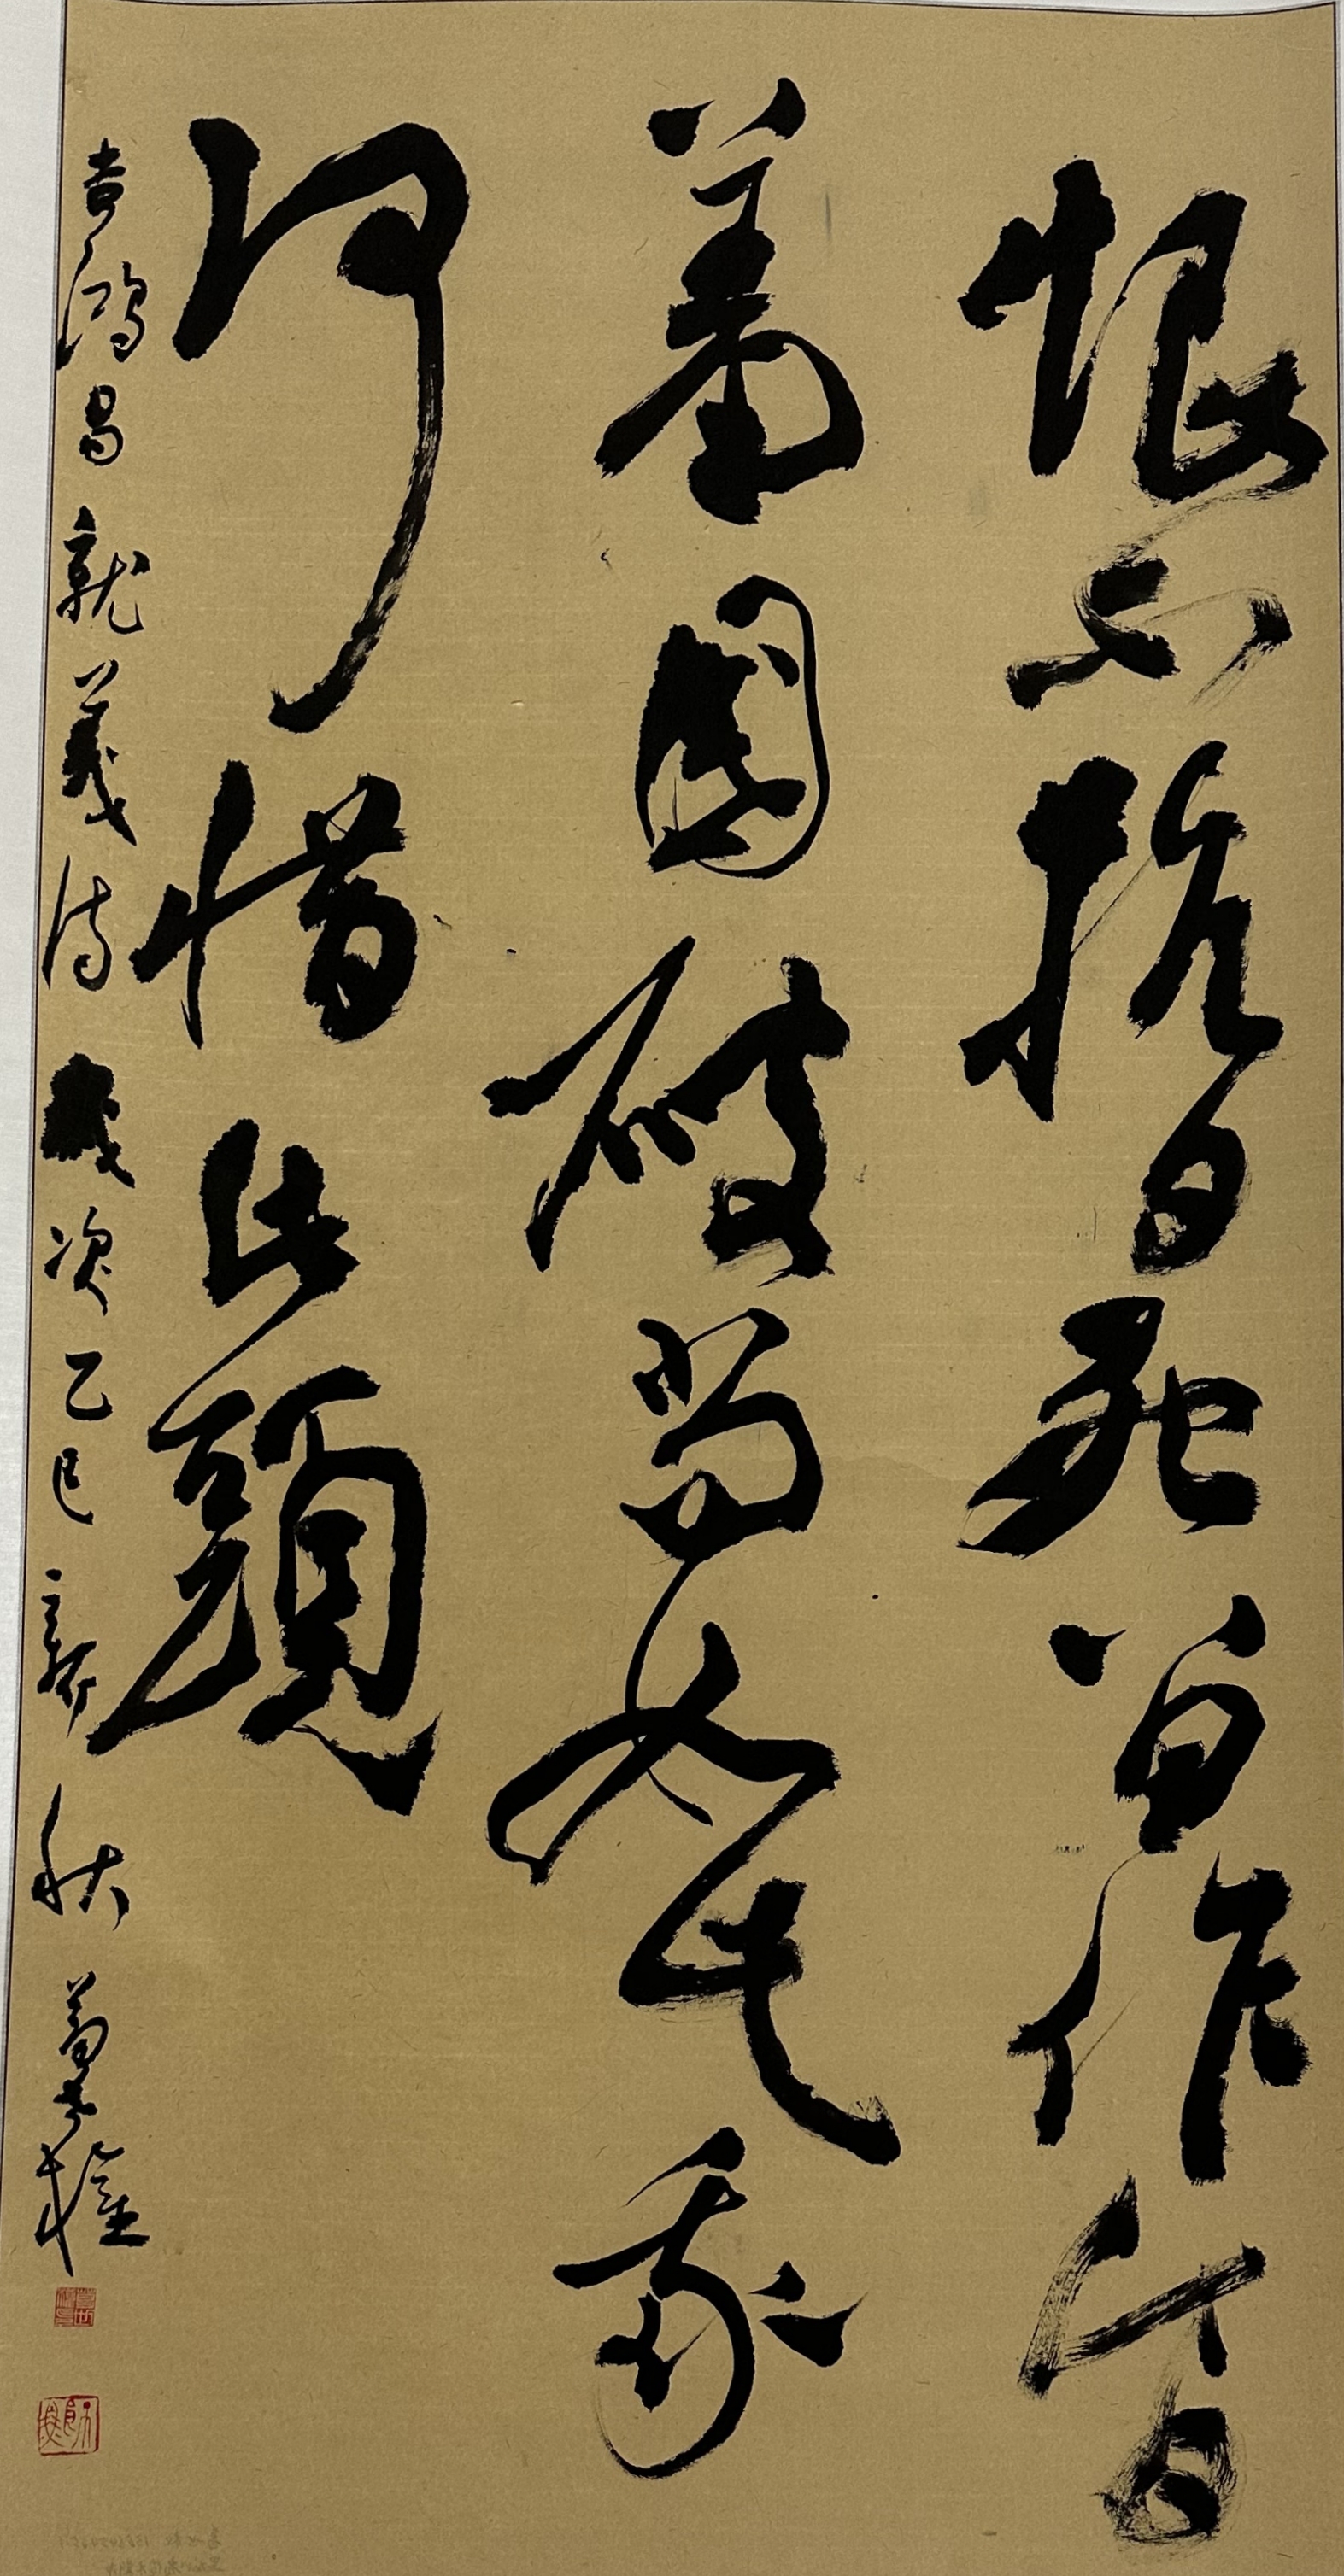 恨不抗日死留作今日
羞国破尚如此我
何惜此頭
吉鴻昌就義詩歲次乙巳新秋